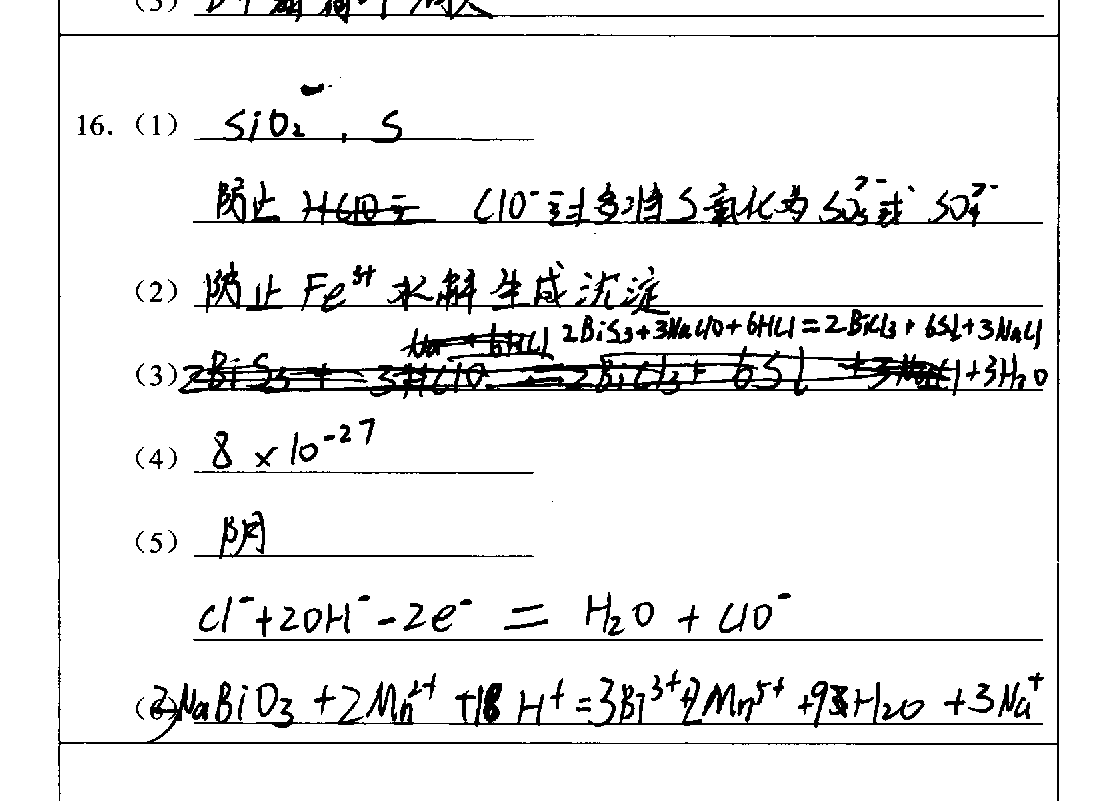 (3)
16. (1) SiO₂、S
防止 ClO⁻过多将S氧化为SO₃²⁻或SO₄²⁻
(2) 防止Fe³⁺水解生成沉淀
2BiS₃+3NaClO+6HCl=2BiCl₃+6S↓+3NaCl
(3) +3H₂O
(4) 8×10⁻²⁷
(5) 阴
Cl⁻+2OH⁻-2e⁻=H₂O+ClO⁻
(6) 3NaBiO₃+2Mn²⁺+18H⁺=3Bi³⁺+2Mn⁵⁺+9H₂O+3Na⁺